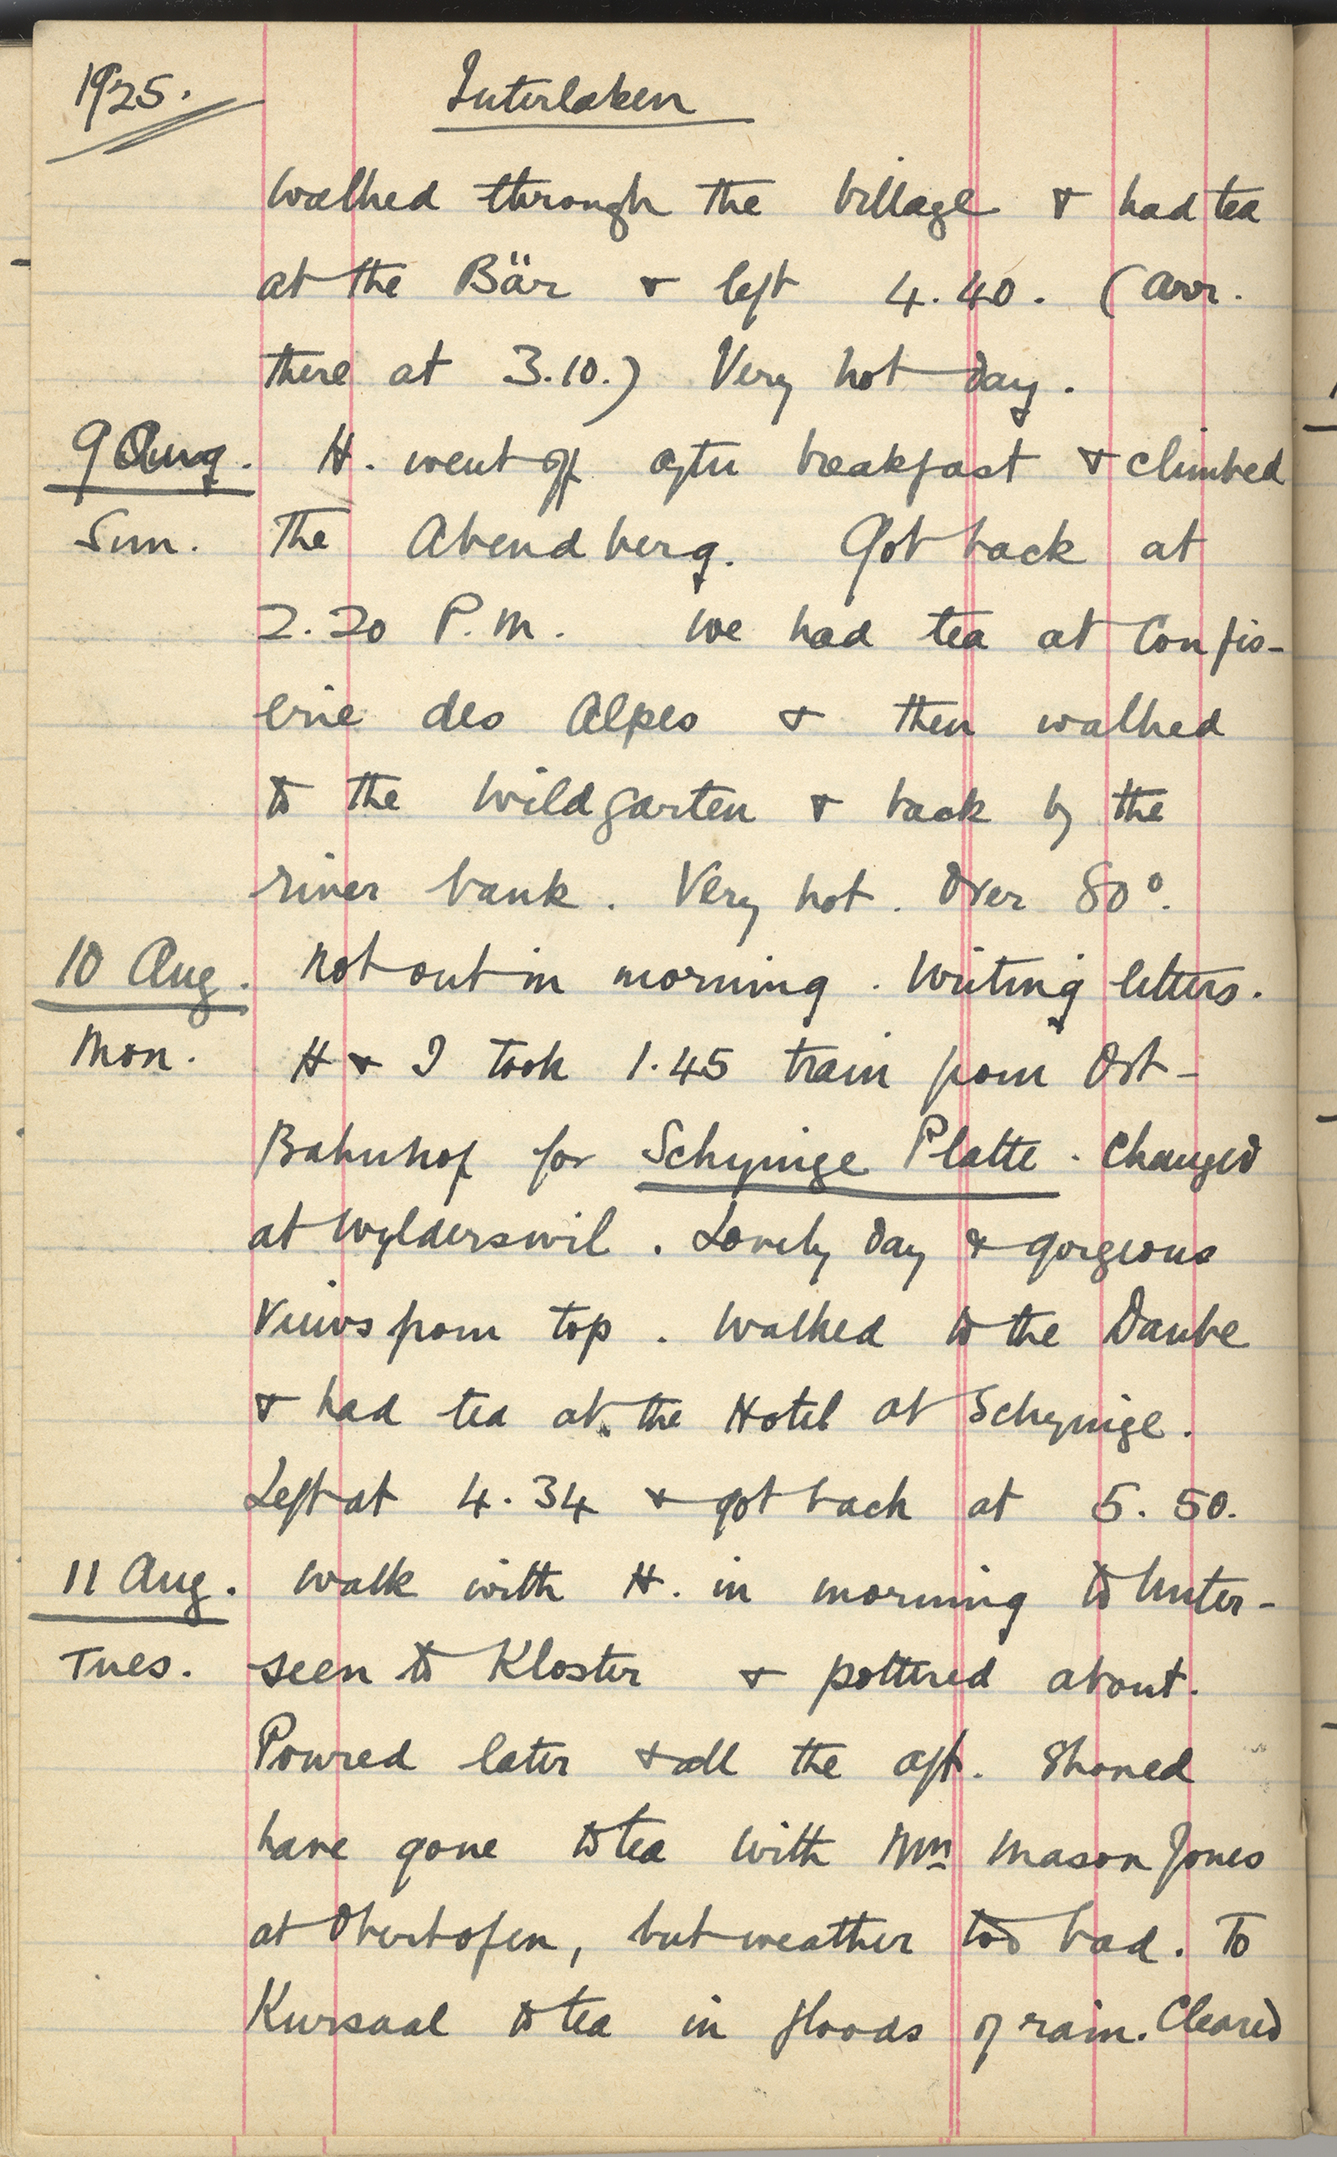 1925. Interlaken
walked through the village & had tea
at the Bär & left 4.40. (arr.
there at 3.10.) Very hot day.
9 Aug. H. went off after breakfast & climbed
Sun. The Abendberg. Got back at
2.20 P.M. We had tea at Confis-
erie des Alpes & then walked
to the Wildgarten & back by the
river bank. Very hot. Over 80°.
10 Aug. Not out in morning. Writing letters.
Mon. H & I took 1.45 train from Ost-
Bahnhof for Schynige Platte. Changed
at Wylderswil. Lovely day & gorgeous
views from top. Walked to the Daube
& had tea at the Hotel at Schynige.
Left at 4.34 & got back at 5.50.
11 Aug. Walk with H. in morning to Unter-
Tues. seen to Kloster & pottered about.
Poured later & all the aft. Should
have gone to tea with Mrs Mason Jones
at Oberhofen, but weather too bad. To
Kursaal to tea in floods of rain. Cleared